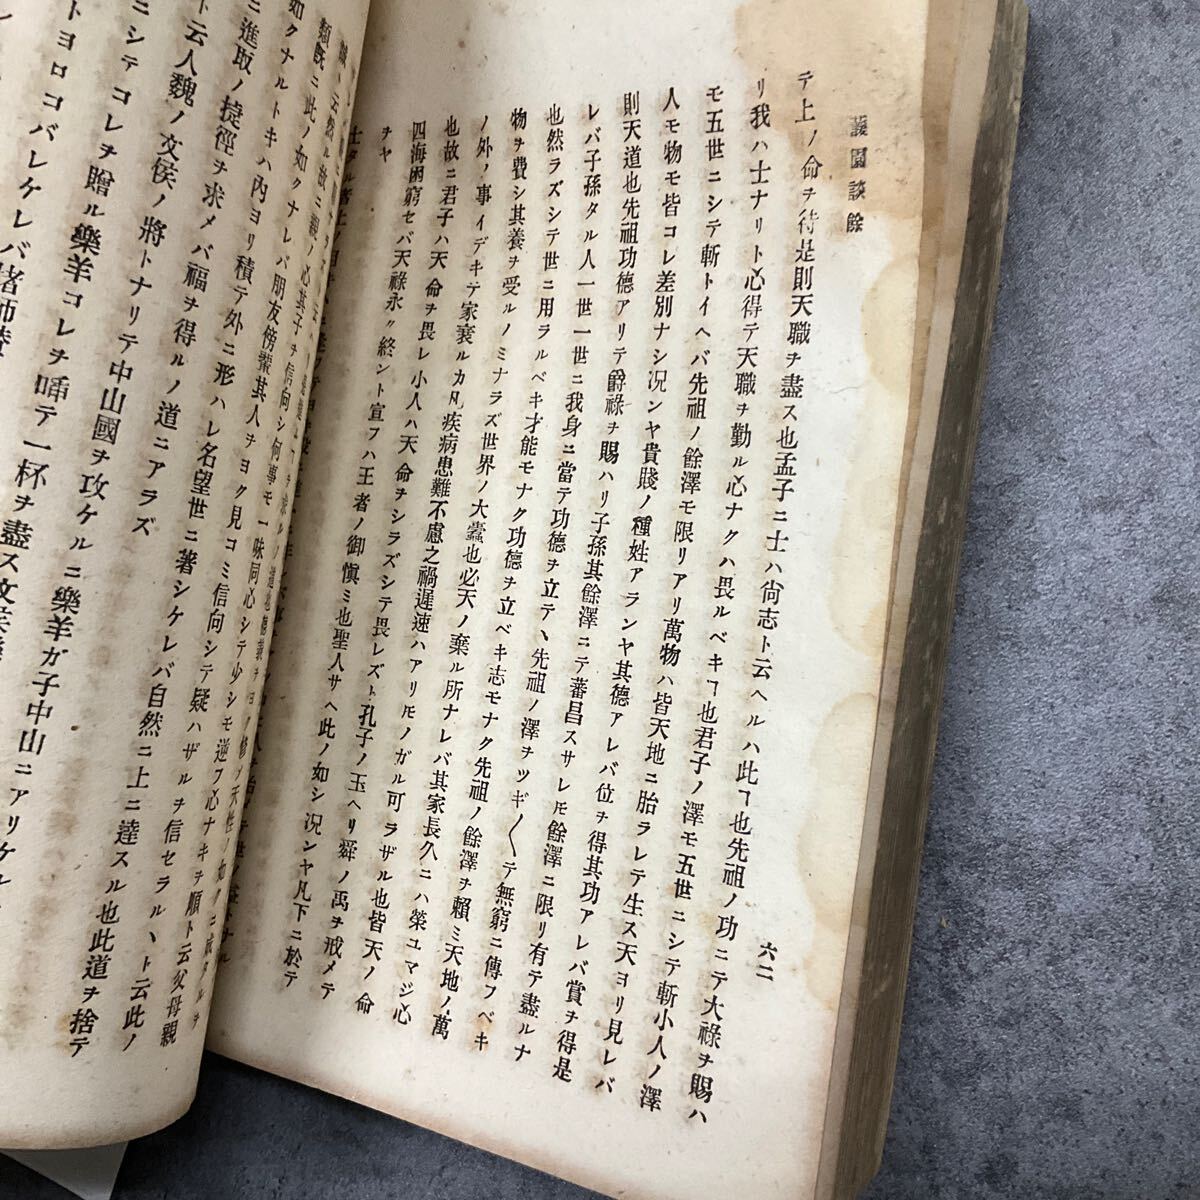 蘐園談餘
六二
テ上ノ命ヲ待是則天職ヲ盡ス也孟子ニ士ハ尙志ト云ヘルハ此ヿ也先祖ノ功ニテ大祿ヲ賜ハ
リ我ハ士ナリト心得テ天職ヲ勤ル心ナクハ畏ルベキヿ也君子ノ澤モ五世ニシテ斬小人ノ澤
モ五世ニシテ斬トイヘバ先祖ノ餘澤モ限リアリ萬物ハ皆天地ニ胎ラレテ生ス天ヨリ見レバ
人モ物モ皆コレ差別ナシ況ンヤ貴賤ノ種姓アランヤ其德アレバ位ヲ得其功アレバ賞ヲ得是
則天道也先祖功德アリテ爵祿ヲ賜ハリ子孫其餘澤ニテ蕃昌スサレ𪜈餘澤ニ限リ有テ盡ルナ
レバ子孫タル人一世一世ニ我身ニ當テ功德ヲ立テヽ先祖ノ澤ヲツギ〱テ無窮ニ傳フベキ
也然ラズシテ世ニ用ラルベキ才能モナク功德ヲ立ベキ志モナク先祖ノ餘澤ヲ賴ミ天地ノ萬
物ヲ費シ其養ヲ受ルノミナラズ世界ノ大蠹也必天ノ棄ル所ナレバ其家長久ニハ榮ユマジ心
ノ外ノ事イデキテ家衰ルカ凡疾病患難不慮之禍遲速ハアリ𪜈ノガル可ラザル也皆天ノ命
也故ニ君子ハ天命ヲ畏レ小人ハ天命ヲシラズシテ畏レズト孔子ノ玉ヘリ舜ノ禹ヲ戒メテ
四海困窮セバ天祿永ク終ント宣フハ王者ノ御愼ミ也聖人サヘ此ノ如シ況ンヤ凡下ニ於テ
ヲヤ
類旣ニ此ノ如クナレバ朋友傍輩其人ヲヨク見コミ信向シテ疑ハザルヲ信セラルヽト云此ノ
如クナルトキハ內ヨリ積テ外ニ形ハレ名望世ニ著シケレバ自然ニ上ニ達スル也此道ヲ捨テ
ニ進取ノ捷徑ヲ求メバ福ヲ得ルノ道ニアラズ
ト云人魏ノ文侯ノ將トナリテ中山國ヲ攻ケルニ樂羊ガ子中山ニアリケル
ニシテコレヲ贈ル樂羊コレヲ啜テ一杯ヲ盡ス文侯
トヨロコバレケレバ堵師贊